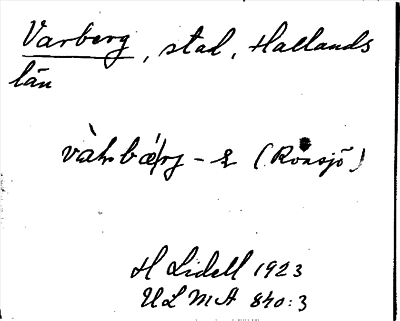 Varberg, stad, Hallands
län
(Ronsjö)
H Lidell 1923
ULMA 840:3